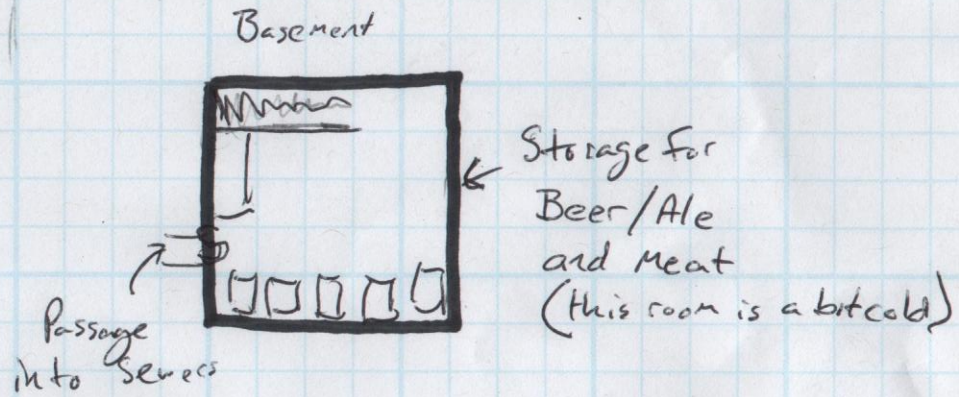 Basement
Storage for
Beer/Ale
and Meat
(this room is a bit cold)
Passage
into Sewers